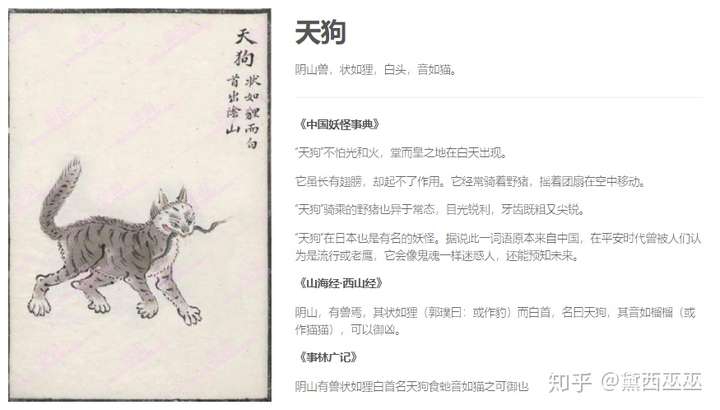 天狗
狀如貍而白
首出陰山
天狗
阴山兽，状如狸，白头，音如猫。
《中国妖怪事典》
“天狗”不怕光和火，堂而皇之地在白天出现。
它虽长有翅膀，却起不了作用。它经常骑着野猪，摇着团扇在空中移动。
“天狗”骑乘的野猪也异于常态，目光锐利，牙齿既粗又尖锐。
“天狗”在日本也是有名的妖怪。据说此一词语原本来自中国，在平安时代曾被人们认
为是流行或老鹰，它会像鬼魂一样迷惑人，还能预知未来。
《山海经·西山经》
阴山，有兽焉，其状如狸（郭璞曰：或作豹）而白首，名曰天狗，其音如榴榴（或
作猫猫），可以御凶。
《事林广记》
阴山有兽状如狸白首名天狗食虵音如猫之可御也
知乎 @黛西巫巫